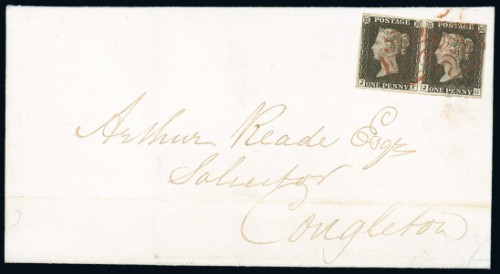 POSTAGE POSTAGE
ONE PENNY ONE PENNY
Arthur Reade Esqr
Solicitor
Congleton